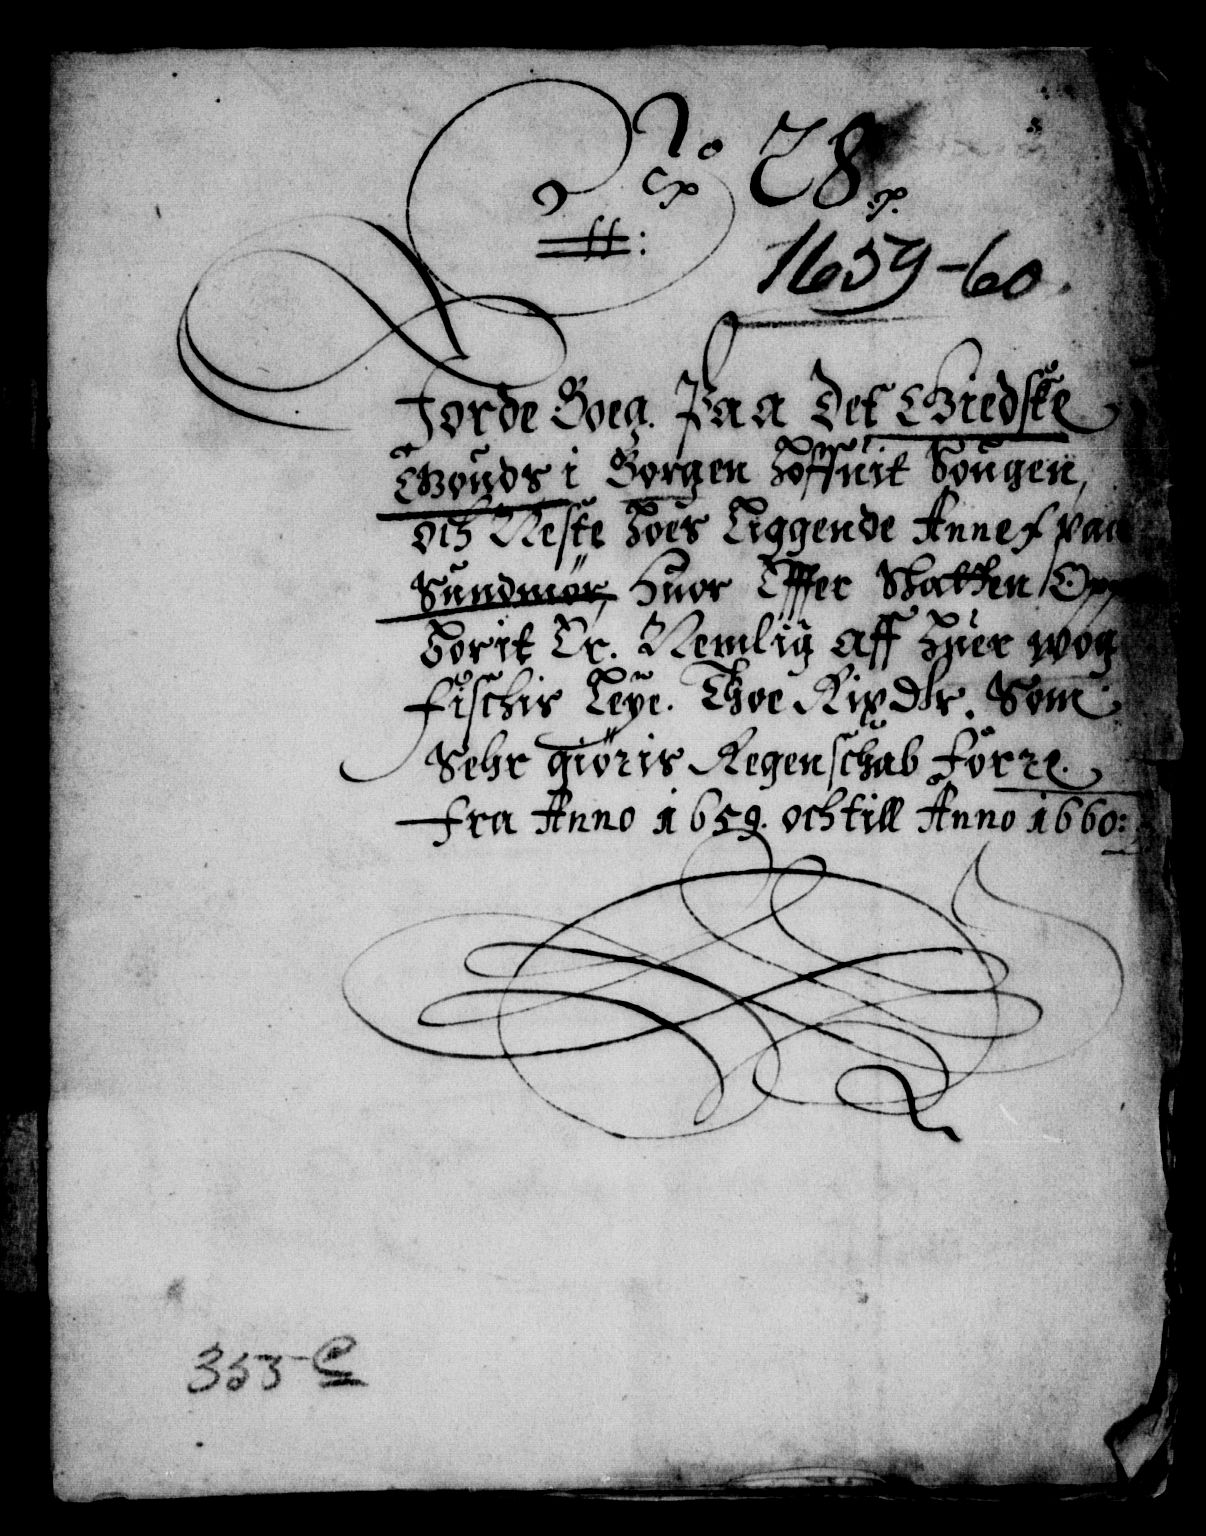 No 28
1659-60.
Jorde Boeg. Paa Det Giedske
Gouds i Borgen Hoffuit Sougen,
och Neste Hoes Liggende Annex paa
Sundmör, Huor Effter Skatten
Borit Er. Nemlig aff Huer wog
Fischis Leye. Thoe Rixdlr. Som
Sehr giöris Regenschab Forre.
Fra Anno 1659. och till Anno 1660:
353-C